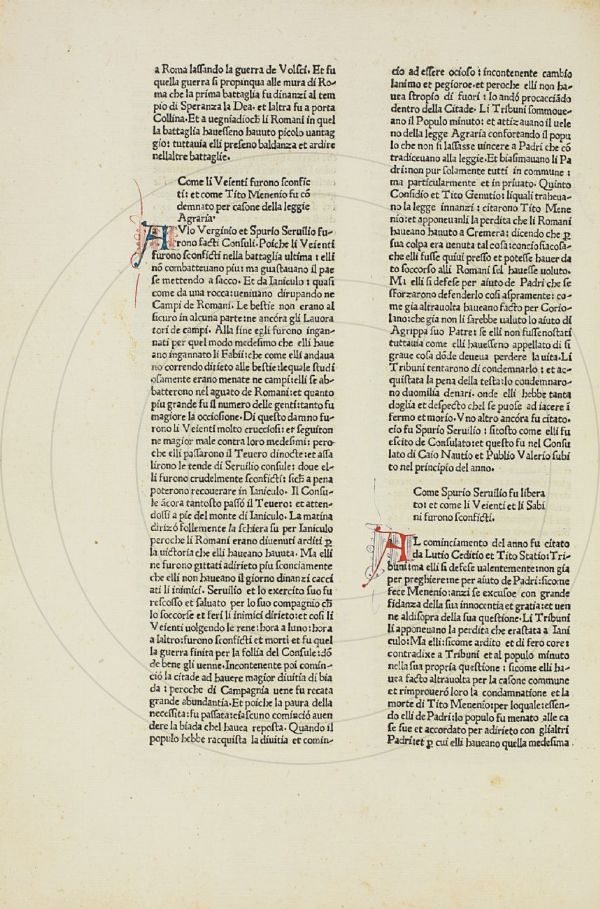 a Roma lassando la guerra de Volsci. Et fu
quella guerra si propinqua alle mura di Ro-
ma che la prima battaglia fu dinanzi al tem
pio di Speranza la Dea. et laltra fu a porta
Collina. Et a uegniadioch li Romani in quel
la battaglia hauesseno hauuto picolo uantag
gio: tuttauia elli preseno baldanza et ardire
nellaltre battaglie.
Come li Veienti furono sconfic
ti: et come Tito Menenio fu cō
demnato per casone della leggie
Agraria.
AVlo Verginio et Spurio Seruilio fu-
rono facti Consuli. Poiche li Veienti
furono sconficti nella battaglia ultima: elli
nō combatteuano piu: ma guastauano il pae
se mettendo a sacco. Et da Ianiculo: quasi
come da una rocca: ueniuano dirupando ne
Campi de Romani. Le bestie non erano al
sicuro in alcuna parte: ne ancóra gli Lauora
tori de campi. Alla fine egli furono ingan-
nati per quel modo medesimo che elli haue
ano ingannato li Fabii: che come elli andaua
no correndo dirieto alle bestie: lequale studi
osamente erano menate ne campi: elli se ab-
batterono nel aguato de Romani: et quanto
piu grande fu il numero delle genti: tanto fu
magiore la occisione. Di questo damno fu-
rono li Veienti molto crucciosi: et seguiton
ne magior male contra loro medesimi: pero-
che elli passarono il Teuero dinocte: et assa
lirono le tende di Seruilio consule: doue el-
li furono crudelmente sconficti: sich a pena
poterono recouerare in Ianiculo. Il Consu-
le ācora tantosto passò il Teuero: et atten-
dossi a pie del monte di Ianiculo. La matina
dirizò follemente la schiera su per Ianiculo
peroche li Romani erano diuenuti arditi ꝑ
la uictoria che elli haueano hauuta. Ma elli
ne furono gittati adirieto piu sconciamente
che elli non haueano il giorno dinanzi cacci
ati li inimici. Seruilio et lo exercito suo fu
rescosso et saluato per lo suo compagno ch
lo soccorse et ferì li inimici dirieto: et cosi li
Veienti uolgendo le rene: hora a luno: hora
a laltro: furono sconficti et morti et fu quel
la guerra finita per la follia del Consule: dō
de bene gli uenne. Incontenente poi comin-
ciò la citade ad hauere magior diuitia di bia
da: peroche di Campagnia uene fu recata
grande abundantia. Et poiche la paura della
necessita: fu passata: ciascuno cominciò auen
dere la biada chel hauea reposta. Quando il
populo hebbe racquista la diuitia et comin-
ciò ad essere ocioso: incontenente cambio
lanimo et pegioroe. et peroche elli non ha-
uea stropio di fuori: lo andò procacciādo
dentro della Citade. Li Tribuni sommoue-
ano il Populo minuto: et attizauano il uele
no della legge Agraria confortando il popu
lo che non si lassasse uincere a Padri che cō
tradiceuano alla leggie. Et biasimauano li Pa
dri: non pur solamente tutti in commune:
ma particularmente et in priuato. Quinto
Considio et Tito Genutio: liquali traheua-
no la legge innanzi: citarono Tito Mene
nio: et apponeuanli la perdita che li Romani
haueano hauuto a Cremera: dicendo che ꝑ
sua colpa era uenuta tal cosa: conciosiacosa-
che elli fusse quiui presso et potesse hauer da
to soccorso alli Romani sel hauesse uoluto.
Ma elli si defese per aiuto de Padri che se
sforzarono defenderlo cosi aspramente: co-
me già altrauolta haueano facto per Corio-
lano: che già non li sarebbe ualuto lo aiuto di
Agrippa suo Patre: se elli non fussenostati
tuttauia come elli hauesseno appellato di si
graue cosa dōde deueua perdere la uita. Li
Tribuni tentarono di condemnarlo: et ac-
quistata la pena della testa: lo condemnaro-
no duomilia denari. onde elli hebbe tanta
doglia et despecto chel se puose ad iacere i
fermo et morio. Vno altro ancóra fu citato.
cio fu Spurio Seruilio: sitosto come elli fu
escito de Consulato: et questo fu nel Consu
lato di Caio Nautio et Publio Valerio subi
to nel principio del anno.
Come Spurio Seruilio fu libera
to: et come li Veienti et li Sabi
ni furono sconficti.
AL cominciamento del anno fu citato
da Lutio Ceditio et Tito Statio: Tri-
buni: ma elli si defese ualentemente: non gia
per preghiere: ne per aiuto de Padri: sicome
fece Menenio: anzi se excusoe con grande
fidanza della sua innocentia et gratia: et uen
ne aldisopra della sua questione. Li Tribuni
li apponeuano la perdita che erastata a Iani
culo: Ma elli: sicome ardito et di fero core:
contradixe a Tribuni et al populo minuto
nella sua propria questione: sicome elli ha-
uea facto altrauolta per la casone commune
et rimprouerò loro la condamnatione et la
morte di Tito Menenio: per loquale: essen-
do elli de Padri: lo populo fu menato alle ca
se sue et accordato per adirieto con glialtri
Padri: et ꝑ cui elli haueano quella medesima